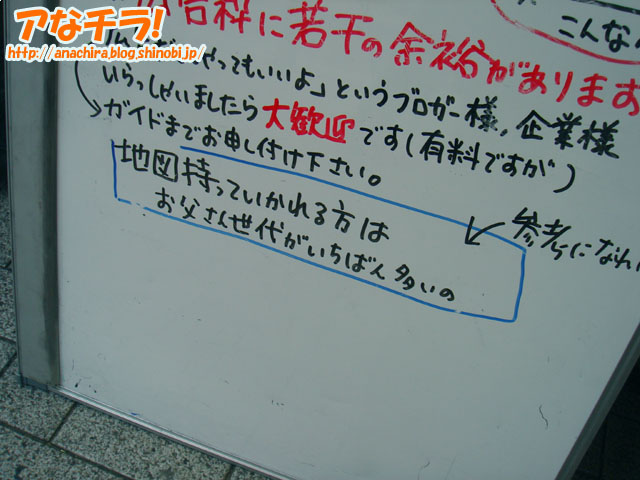 アなチラ!
http://anachira.blog.shinobi.jp/
こんな
広告枠に若干の余裕があります
やってもいいよ」というブロガー様、企業様
いらっしゃいましたら大歓迎です(有料ですが)
ガイドまでお申し付け下さい。
地図持っていかれる方は
お父さん世代がいちばん多いの
参考になれ